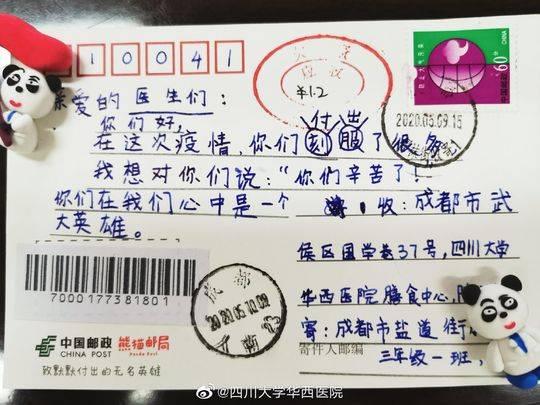 10041
¥1.2
60分
中国邮政
CHINA
2020.05.09.15
亲爱的医生们:
你们好,
付出
在这次疫情,你们刻服了很多
我想对你们说:“你们辛苦了!
你们在我们心中是一个
大英雄。
收:成都市武
侯区国学巷37号,四川大学
华西医院膳食中心,
寄:成都市盐道街
寄件人邮编
三年级一班,
7000177381801
成都
中国邮政
CHINA POST
熊猫邮局
Panda Post
致默默付出的无名英雄
@四川大学华西医院